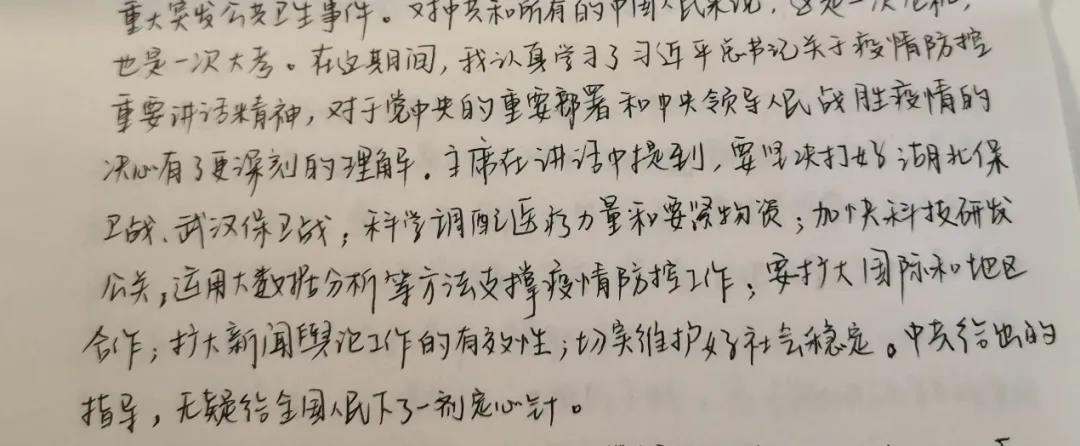 重大突发公共卫生事件。对中共和所有的中国人民来说，这是一次危机，
也是一次大考。在这期间，我认真学习了习近平总书记关于疫情防控
重要讲话精神，对于党中央的重要部署和中央领导人民战胜疫情的
决心有了更深刻的理解。主席在讲话中提到，要坚决打好湖北保
卫战、武汉保卫战；科学调配医疗力量和要紧物资；加快科技研发
公关，运用大数据分析等方法支撑疫情防控工作；要扩大国际和地区
合作；扩大新闻舆论工作的有效性；切实维护好社会稳定。中央给出的
指导，无疑给全国人民下了一剂定心针。